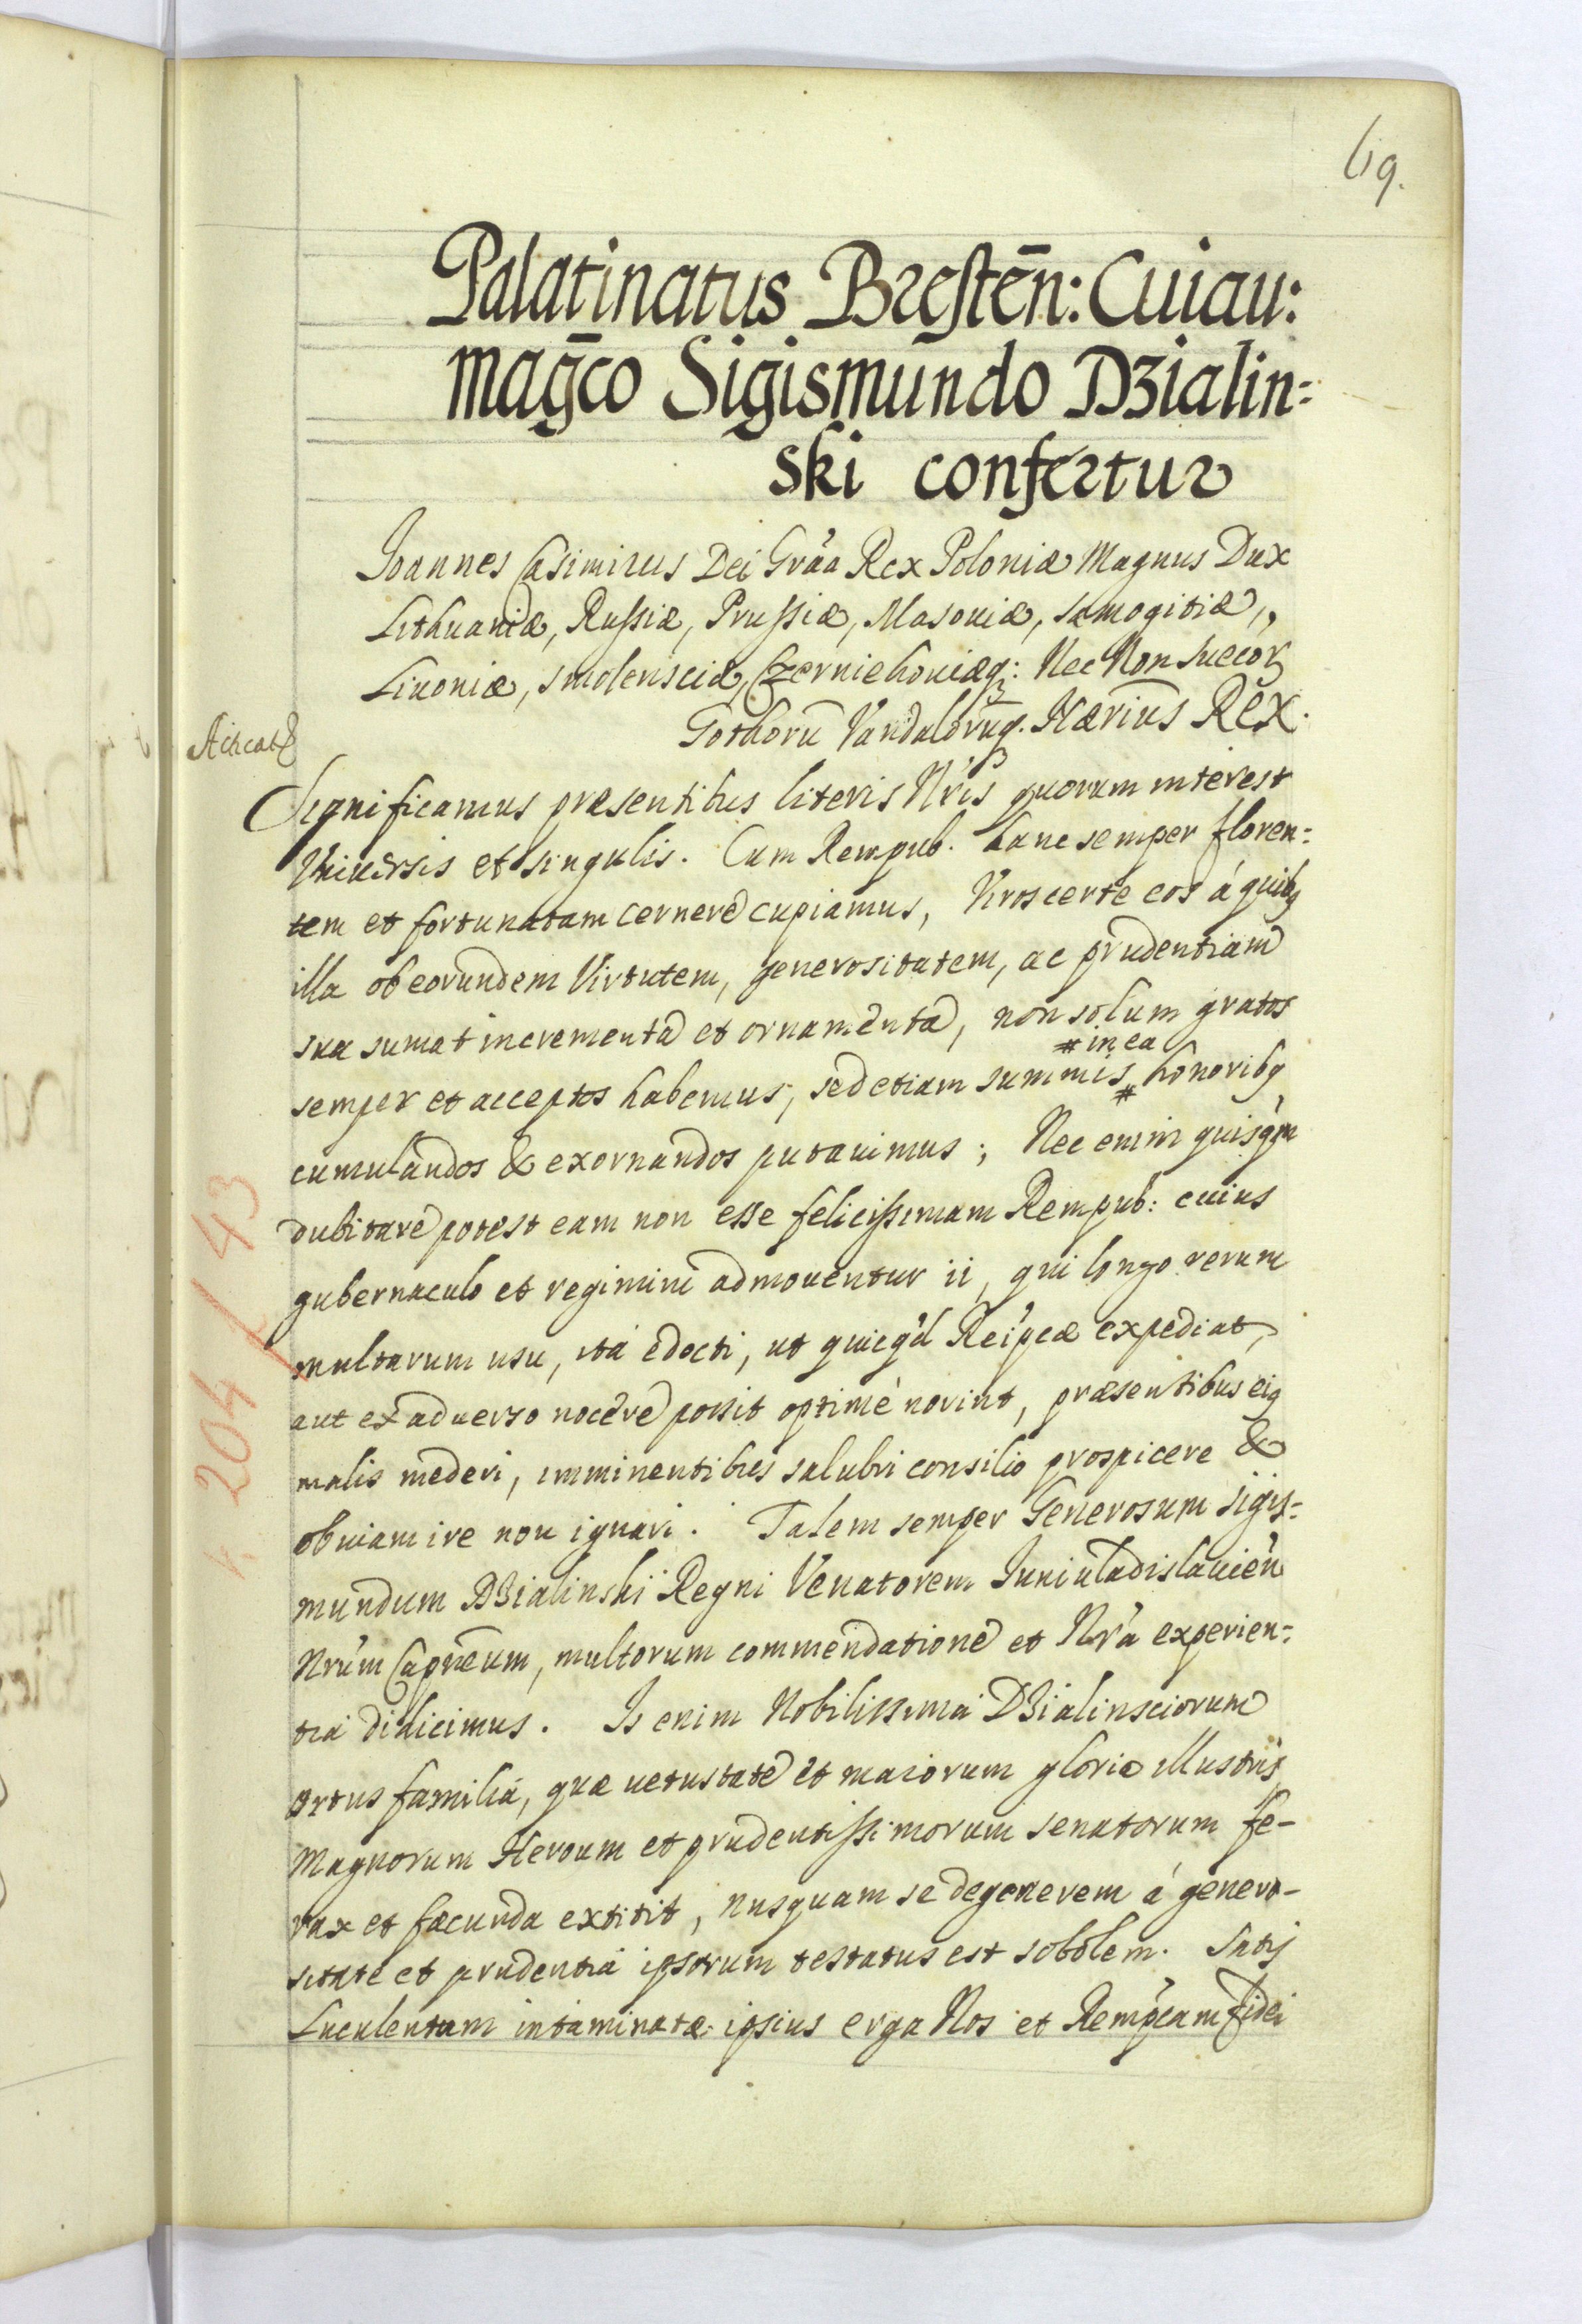 69.
Palatinatus Brestēn: Cuiau:
Mag̃co Sigismundo Dzialin=
ski confertur
Joannes Casimirus Dei Grãa Rex Poloniæ Magnus Dux
Lithuaniæ, Russiæ, Prussiæ, Masouiæ, Samogitiæ,,
Liuoniæ, Smolensciæ, Czerniehouiæq: Nec Non Suecoꝝ
Gothorũ Vandalorũq. Hærius Rex.
Significamus præsentibus literis Nr̃is quorum interest
Vniuersis et singulis. Cum Rempub. hanc semper floren=
tem et fortunatam cernere cupiamus, Viros certe eos á quibꝗ
illa ob eorundem Virtutem, generositatem, ac prudentiam
sua sumat incrementa et ornamenta, non solum gratos
# in ea
semper et acceptos habemus, sed etiam summis # honoribꝗ
cumulandos & exornandos putauimus; Nec enim quisq̃m
dubitare potest eam non esse felicissimam Rempub: cuius
gubernaculo et regimini admouentur ii, qui longo rerum
multarum usu, ita edocti, ut quicq̃d Reip̃cæ expediat,
aut ex aduerso nocere possit optimè norint, præsentibus eiꝗ
malis mederi, imminentibus salubri consilio prospicere &
obuiam ire non ignari. Talem semper Generosum Sigis=
mundum Dzialinski Regni Venatorem Iuniuladislauien̄
Nrũm Capneum, multorum commendatione et Nr̃a experien=
tia didicimus. Is enim Nobilissimá Dzialinsciorum
ortus familiá, quæ uetustate et maiorum gloria illustris,
Magnorum Heroum et prudentissimorum senatorum fe-
rax et fæcunda extitit, nusquam se degenerem á genero-
sitate et prudentiá ipsorum testatus est sobolem. Satis
Luculentam intaminatæ ipsius erga Nos et Remp̃cam fidei
204 / 43